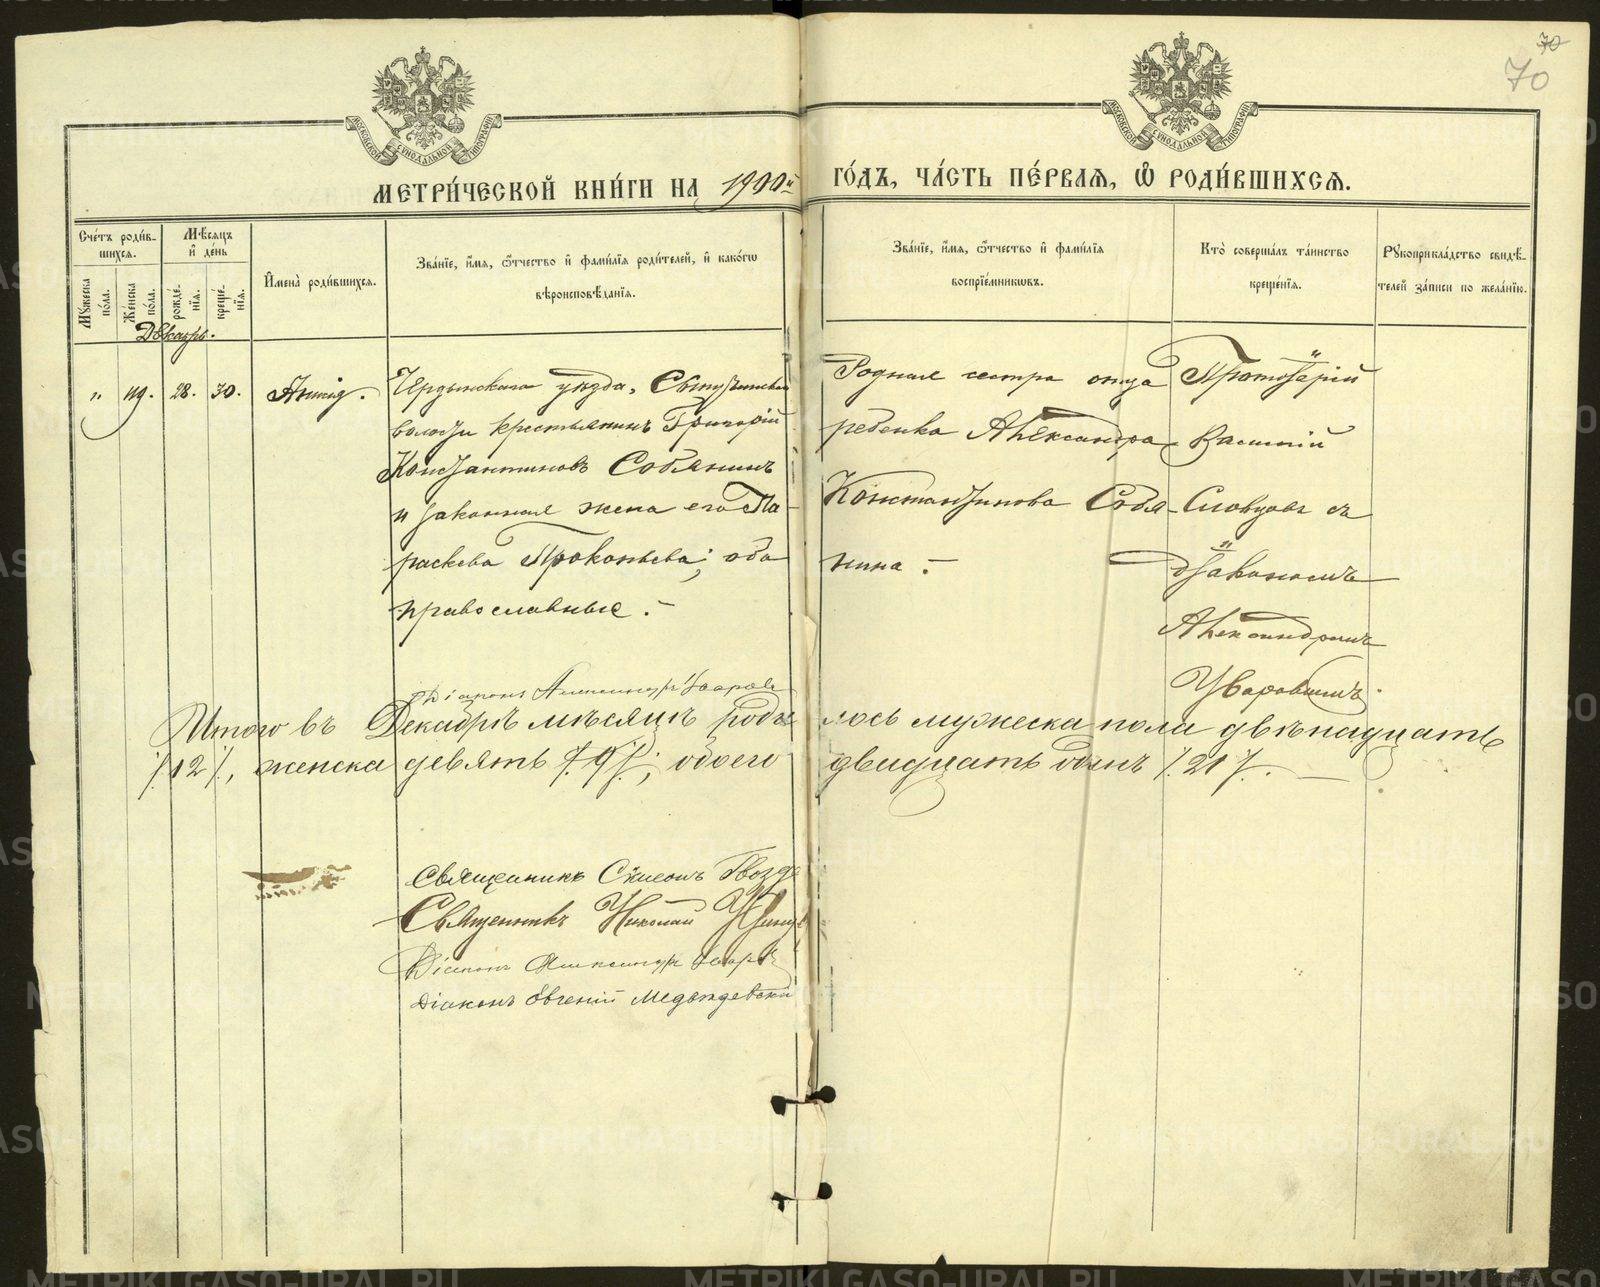 70
70
МЕТРИ́ЧЕСКОЙ КНИ́ГИ НА 1900й ГО́ДЪ, ЧА́СТЬ ПЕ́РВАЯ, Ѡ РОДИ́ВШИХСЯ.
Сче́тъ роди́в-
шихся.
Мужеска по́ла.
Же́нска по́ла.
Мѣ́сяцъ
и де́нь
рожде́-
нїя.
креще́-
нїя.
И҆мена̀ роди́вшихся.
Зва́нїе, и҆́мя, ѻ҆́тчество и҆ фами́лїя роди́телей, и҆ како́гѡ
вѣроисповѣ́данїя.
Зва́нїе, и҆́мя, ѻ҆́тчество и҆ фами́лїя
воспрїе́мникѡвъ.
Кто̀ соверша́лъ та́инство
креще́нїя.
Рукоприкла́дство свидѣ́-
телей за́писи по жела́нїю.
Декабрь.
" 119. 28. 30.
Чердынскаго уѣзда,
волости крестьянинъ Григорій
Константиновъ Собянинъ
и законная жена его Па
раскева Прокопьева; оба
православные. –
Родная сестра отца
ребенка Александра
Константинова Собя-
нина. –
Протоіерій
Василій
Словцовъ съ
діакономъ
Александромъ
Уваровымъ.
Діаконъ Александръ Уваровъ
Итого въ Декабрѣ мѣсяцѣ роди лось мужеска пола двѣнадцать
/.12./, женска девять /.9./, обоего двадцать одинъ /.21./. —
Священникъ Симеонъ Гвозд
Священникъ Николай
Діаконъ Александръ Уваровъ
Діаконъ Евгеній Медвѣдевскій
METRIKI.GASO-URAL.RU